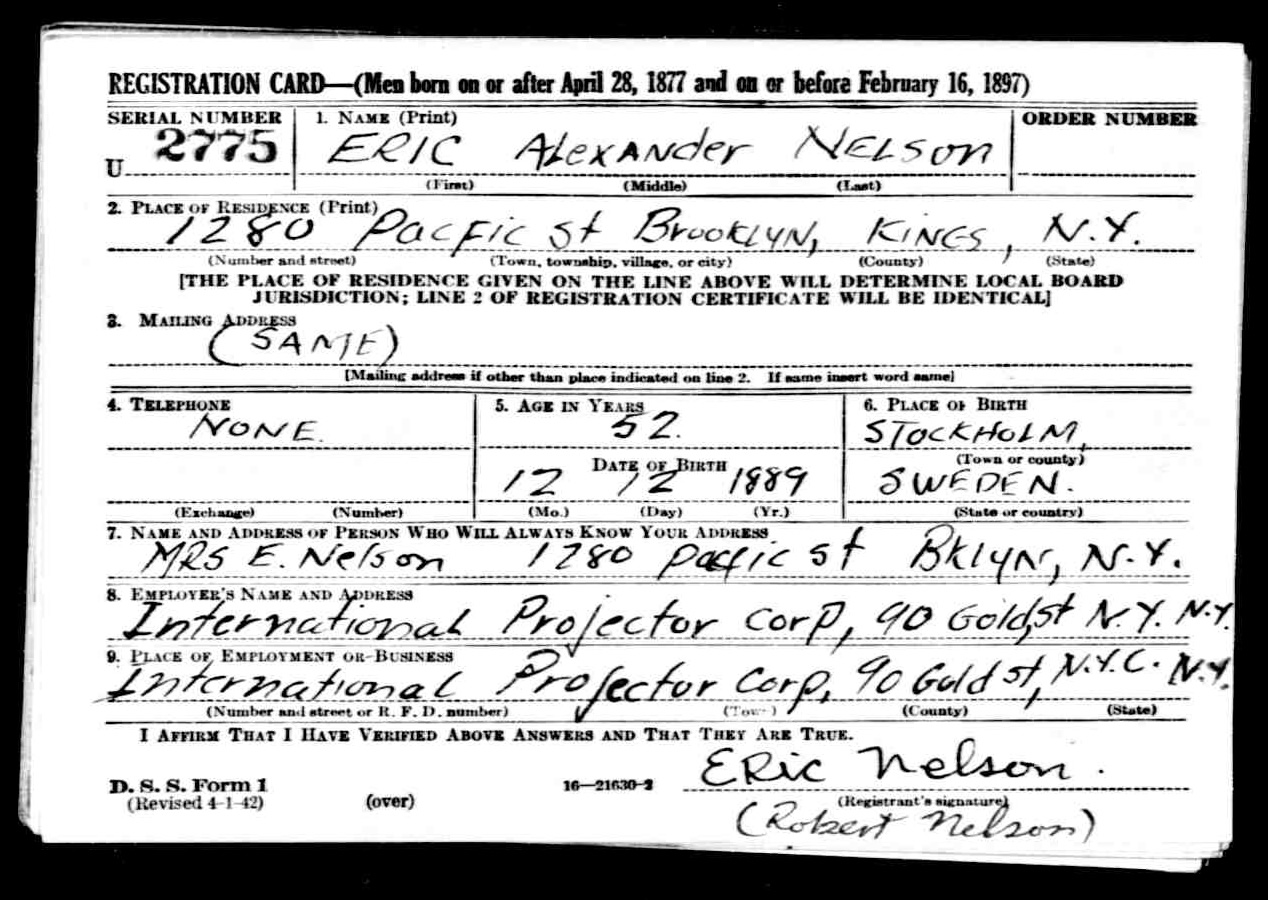 REGISTRATION CARD—(Men born on or after April 28, 1877 and on or before February 16, 1897)
SERIAL NUMBER 1. NAME (Print) ORDER NUMBER
U 2775 ERIC Alexander NELSON
(First) (Middle) (Last)
2. PLACE OF RESIDENCE (Print)
1280 Pacfic st Brooklyn, KINGS, N.Y.
(Number and street) (Town, township, village, or city) (County) (State)
[THE PLACE OF RESIDENCE GIVEN ON THE LINE ABOVE WILL DETERMINE LOCAL BOARD
JURISDICTION; LINE 2 OF REGISTRATION CERTIFICATE WILL BE IDENTICAL]
3. MAILING ADDRESS
(SAME)
[Mailing address if other than place indicated on line 2. If same insert word same]
4. TELEPHONE 5. AGE IN YEARS 6. PLACE OF BIRTH
NONE. 52. STOCKHOLM,
(Town or county)
DATE OF BIRTH
12 12 1889 SWEDEN.
(Exchange) (Number) (Mo.) (Day) (Yr.) (State or country)
7. NAME AND ADDRESS OF PERSON WHO WILL ALWAYS KNOW YOUR ADDRESS
MRS E. Nelson 1280 pacfic st Bklyn, N.Y.
8. EMPLOYER'S NAME AND ADDRESS
International Projector Corp, 90 Gold st N.Y. N.Y.
9. PLACE OF EMPLOYMENT OR BUSINESS
International Projector Corp, 90 Gold st, N.Y.C. N.Y.
(Number and street or R. F. D. number) (Town) (County) (State)
I AFFIRM THAT I HAVE VERIFIED ABOVE ANSWERS AND THAT THEY ARE TRUE.
ERic Nelson.
D. S. S. Form 1
(Revised 4-1-42) (over) 16—21630-2 (Registrant's signature)
(Robert Nelson)